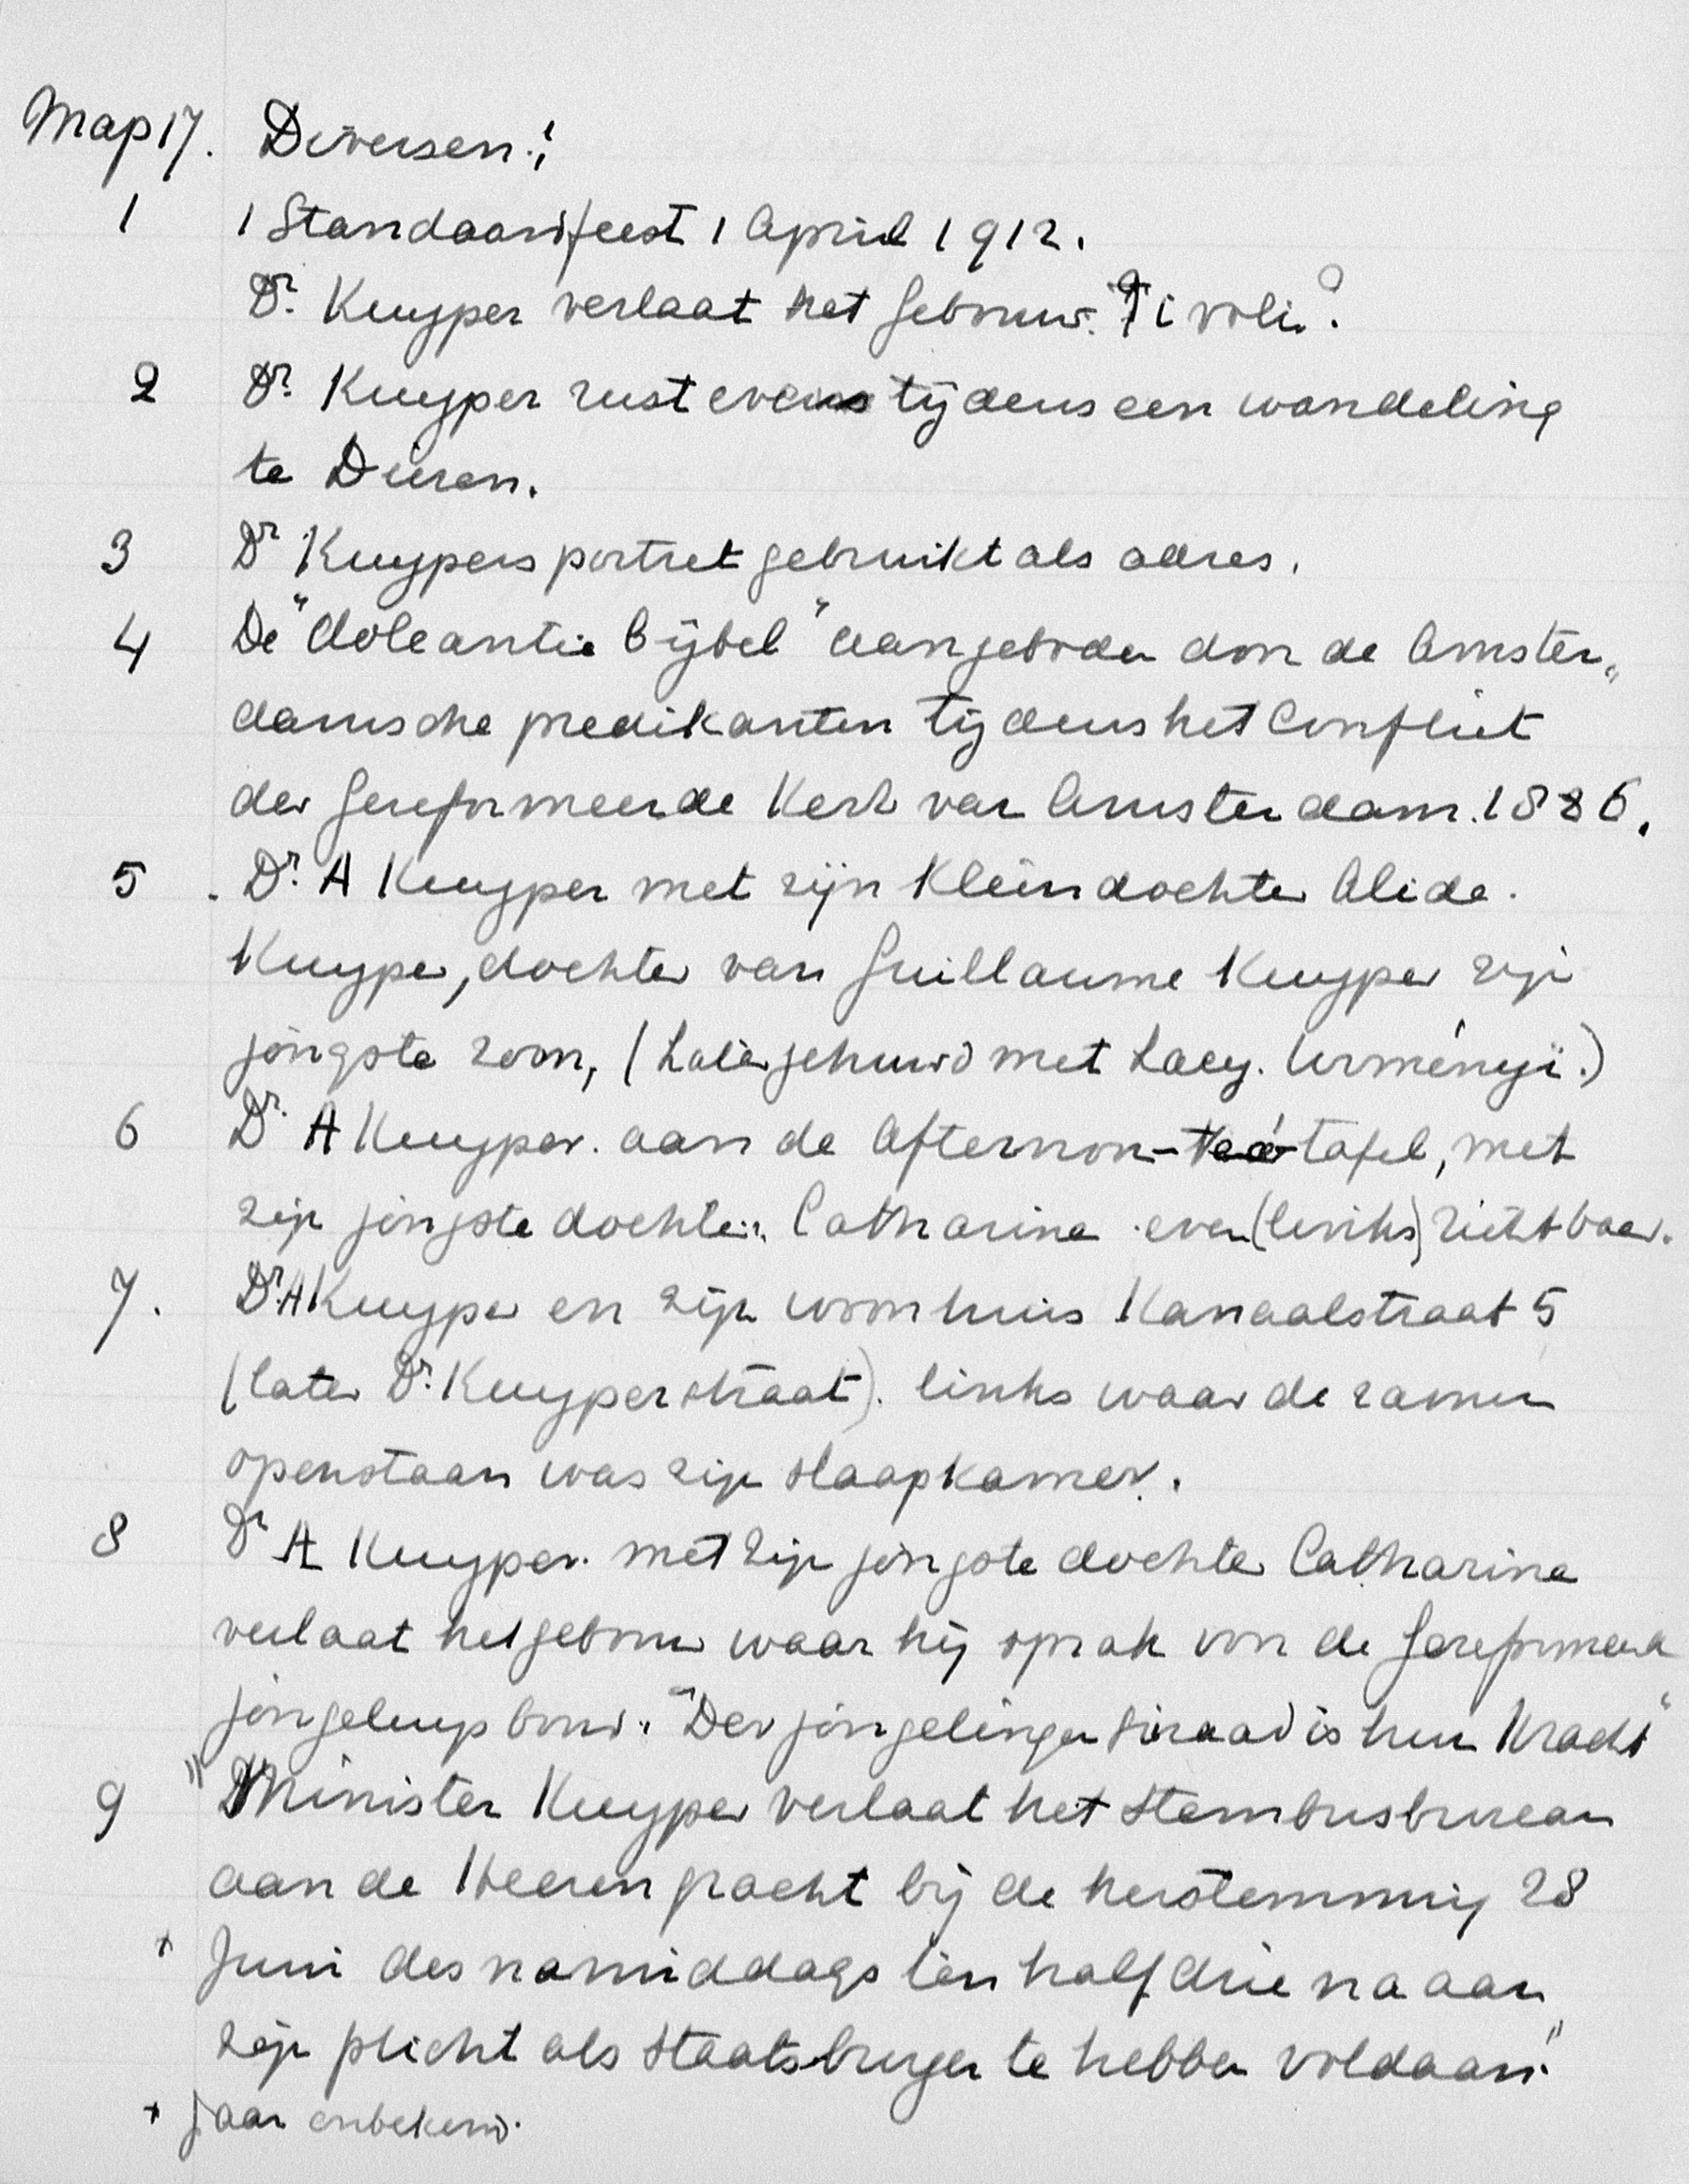 Map 17. Diversen:
1 1 Standaardfeest 1 April 1912.
Dr. Kuyper verlaat het gebouw "Tivoli".
2 Dr. Kuyper rust even tijdens een wandeling
te Duren.
3 Dr Kuypers portret gebruikt als adres.
4 De "doleantie bijbel" aangeboden door de Amster„
damsche predikanten tijdens het Conflict
der Gereformeerde Kerk van Amsterdam. 1886.
5 Dr. A Kuyper met zijn Kleindochter Alida.
Kuyper, dochter van Guillaume Kuyper zijn
jongste zoon, (Later gehuwd met Lacy. Urményi.)
6 Dr. A Kuyper. aan de Afternoon-tea tafel, met
zijn jongste dochter, Catharina even (links) zichtbaar.
7. Dr. A Kuyper en zijn woonhuis Kanaalstraat 5
(later Dr. Kuyperstraat). links waar de ramen
openstaan was zijn slaapkamer.
8 Dr A Kuyper. met zijn jongste dochter Catharina
verlaat het gebouw waar hij sprak voor de Gereformeerd
jongelingsbond. "Der jongelingen sieraad is hun Kracht"
9 "Minister Kuyper verlaat het stembusbureau
aan de Heerengracht bij de herstemming 28
+ Juni des namiddags ten half drie na aan
zijn plicht als staatsburger te hebben voldaan."
+ jaar onbekend.